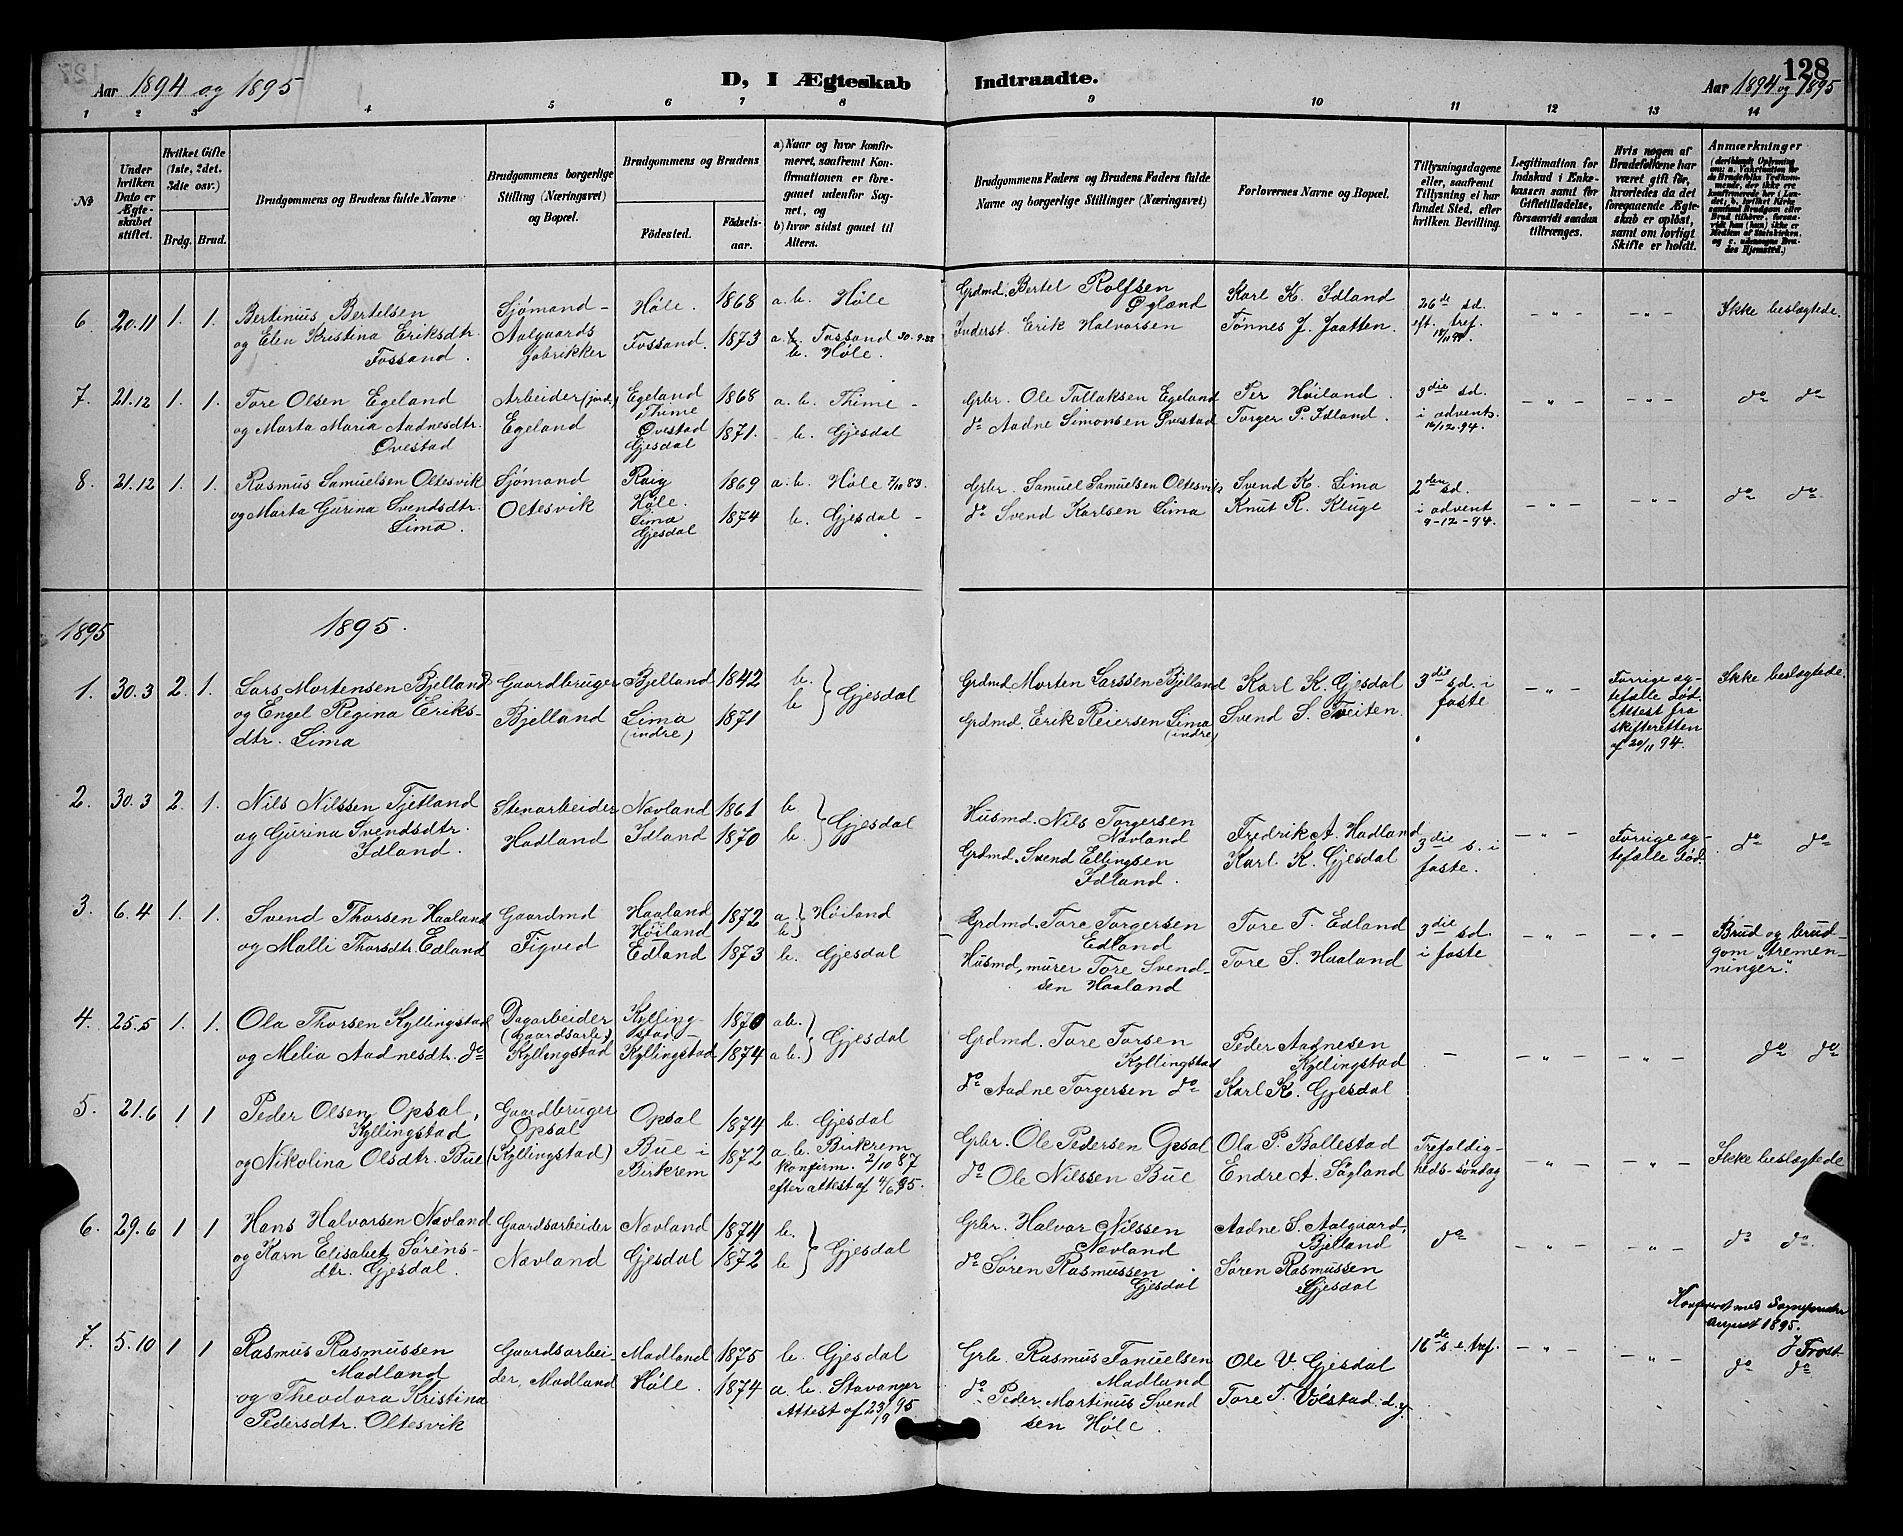 128
Aar 1894 og 1895
D, I Ægteskab
Indtraadte.
Aar 1894 og 1895
1 2 3 4 5 6 7 8 9 10 11 12 13 14
№
Under hvilken Dato er Ægteskabet stiftet.
Hvilket Gifte (1ste, 2det. 3die osv.)
Brdg. Brud.
Brudgommens og Brudens fulde Navne
Brudgommens borgerlige Stilling (Næringsvei) og Bopæl.
Brudgommens og Brudens
Fødested.
Fødselsaar.
a) Naar og hvor konfirmeret, saafremt Konfirmationen er foregaaet udenfor Sognet, og
b) hvor sidst gaaet til Alters.
Brudgommens Faders og Brudens Faders fulde Navne og borgerlige Stillinger (Næringsvei)
Forlovernes Navne og Bopæl.
Tillysningsdagene eller, saafremt Tillysning ei har fundet Sted, efter hvilken Bevilling.
Legitimation for Indskud i Enkekassen samt for Giftetilladelse, forsaavidt saadan tiltrænges.
Hvis nogen af Brudefolkene har været gift før, hvorledes da det foregaaende Ægteskab er opløst, samt om lovligt Skifte er holdt.
Anmærkninger
6. 20.11 1. 1. Bertinius Bertelsen
og Elen Kristina Eriksdtr.
Fossand.
Sjømand
Aalgaards fabrikker
Høle. 1868 a. b. Høle
Fossand. 1873 a. Fossand 30.9.88
b. Høle.
Grdmd. Bertel Rolfsen
Øgland
Inderst. Erik Halvorsen
Karl K. Idland
Tønnes J. Jaatten.
26de sd.
eft. tref.
18/11 94.
- „ - - „ - Ikke beslægtede.
7. 21.12 1. 1. Tore Olsen Egeland
og Marta Maria Aadnesdtr.
Ovestad
Arbeider (jord.)
Egeland
Egeland
Thime 1868 a. b. Thime -
Ovestad
Gjesdal 1871. - b. Gjesdal
Grbr. Ole Tollaksen Egeland
do Aadne Simonsen Ovestad
Per Høiland.
Torger P. Idland.
3die sd.
i advent.
16/12.94.
- „ - - „ - do do
8. 21.12 1. 1. Rasmus Samuelsen Oltesvik
og Marta Gurina Svendsdtr.
Lima.
Sjømand
Oltesvik
Raig
Høle. 1869 a. b. Høle 7/10 83.
Lima
Gjesdal 1874 b. Gjesdal -
Grbr. Samuel Samuelsen Oltesvik
do Svend Karlsen Lima
Svend K. Lima
Knut R. Kluge
2den sd.
i advent
9-12-94.
- „ - - „ - do do.
1895 1895.
1. 30.3 2. 1. Lars Mortensen Bjelland
og Engel Regina Eriks-
dtr. Lima
Gaardbruger
Bjelland
Bjelland 1842 b.
Lima
(indre) 1871 b. Gjesdal
Grdmd. Morten Larssen Bjelland
Grdmd. Erik Reiersen Lima
(indre)
Karl K. Gjesdal
Svend S. Tveiten.
3die sd. i
faste
- „ -
Forrige æg-
tefælle død.
Attest fra
skifteretten
af 20/11 94.
Ikke beslægtede.
2. 30.3 2. 1. Nils Nilssen Tjetland
og Gurina Svendsdtr.
Idland.
Stenarbeider
Hadland
Nævland 1861 b.
Idland 1870 b. Gjesdal
Husmd. Nils Torgersen
Nævland
Grdmd. Svend Ellingsen
Idland.
Fredrik A. Hadland
Karl K. Gjesdal
3die s. i
faste.
- „ -
Forrige æg-
tefælle død.
do do
3. 6.4 1. 1. Svend Thorsen Haaland
og Malli Thorsdtr. Edland
Gaardmd
Figved
Haaland
Høiland 1872 a. b. Høiland
Edland 1873 b. Gjesdal
Grdmd. Tore Torgersen
Edland
Husmd, murer Tore Svend-
sen Haaland
Tore T. Edland
Tore S. Haaland
3die sd.
i faste
- „ - - „ -
Brud og brud-
gom "tremen-
ninger".
4. 25.5 1. 1. Ola Thorsen Kyllingstad
og Melia Aadnesdtr. do
Dagarbeider
(Gaardsarb.)
Kyllingstad
Kylling-
stad - 1870 ab.
Kyllingstad 1874 a b. Gjesdal
Grdmd. Tore Torsen
Kyllingstad
do Aadne Torgersen do
Peder Aadnesen
Kyllingstad
Karl K. Gjesdal
- - „ - - „ - do do
5. 21.6 1 1 Peder Olsen Opsal,
Kyllingstad
og Nikolina Olsdtr. Bue
Gaardbruger
Opsal
(Kyllingstad)
Opsal 1874 b. Gjesdal
Bue i
Birkrem 1872 a. b. Birkrem
konfirm. 2/10 87
efter attest af 4/6 95.
Grbr. Ole Pedersen Opsal
do Ole Nilssen Bue
Ola P. Ballestad
Endre A. Søgland
Trefoldig-
heds-søndag
- „ - - „ - Ikke beslægtede
6. 29.6 1 1 Hans Halvorsen Nævland
og Karn Elisabet Sørens-
dtr. Gjesdal.
Gaardsarbeider
Nævland
Nævland 1874 b.
Gjesdal 1872 b Gjesdal
Grbr. Halvor Nilssen
Nævland
do Søren Rasmussen
Gjesdal
Aadne S. Aalgaard,
Bjelland
Søren Rasmussen
Gjesdal
do - „ - - „ - do do.
Konfereret med
August 1895.
J Frost
7. 5.10 1 1 Rasmus Rasmussen
Madland
og Theodora Kristina
Pedersdtr. Oltesvik
Gaardsarbei-
der, Madland
Madland 1875 b. Gjesdal
Høle. 1874 a. b. Stavanger
Attest af 23/9 95
Grb. Rasmus Tanuelsen
Madland
do. Peder Martinus Svend
sen Høle.
Ole V. Gjesdal
Tore T. Vølstad. d.y.
16de s e. tref.
- „ - - „ - do do